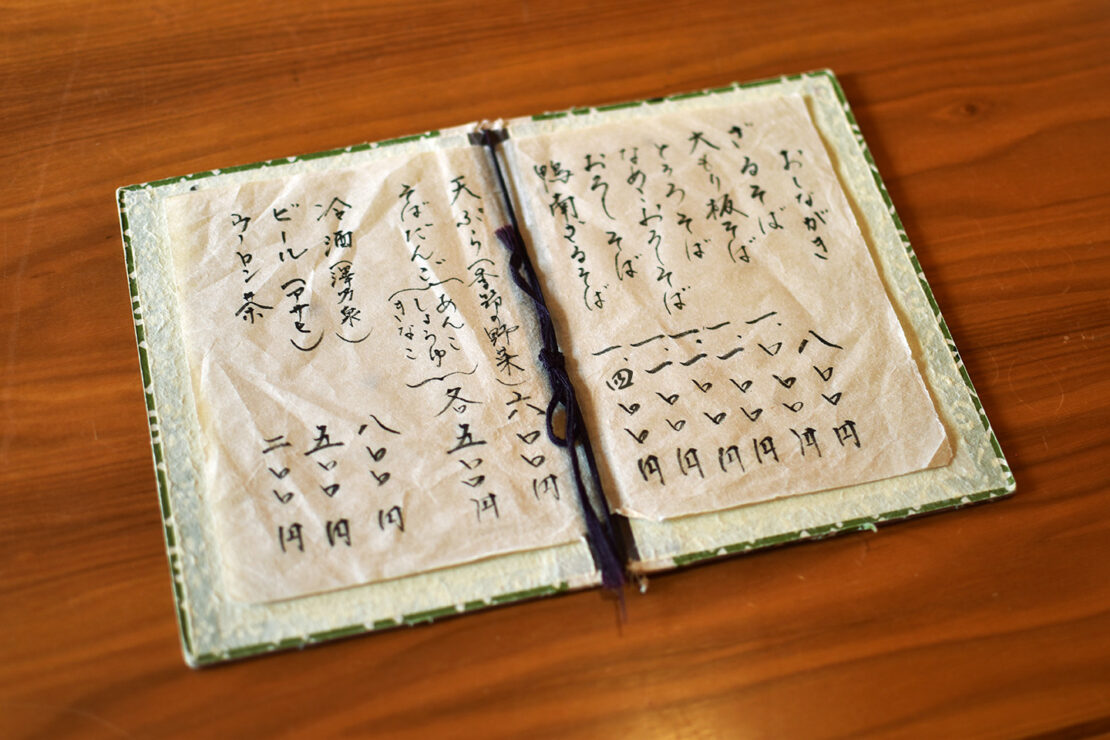 おしながき
ざるそば 八〇〇円
大もり板そば 一、〇〇〇円
とろろそば 一、一〇〇円
なめこおろしそば 一、一〇〇円
おろしそば 一、一〇〇円
鴨南ざるそば 一、四〇〇円
天ぷら(季節の野菜) 六〇〇円
そばだんご(あんこ)(しょうゆ)(きなこ) 各五〇〇円
冷酒(澤乃泉) 八〇〇円
ビール(アサヒ) 五〇〇円
ウーロン茶 二〇〇円